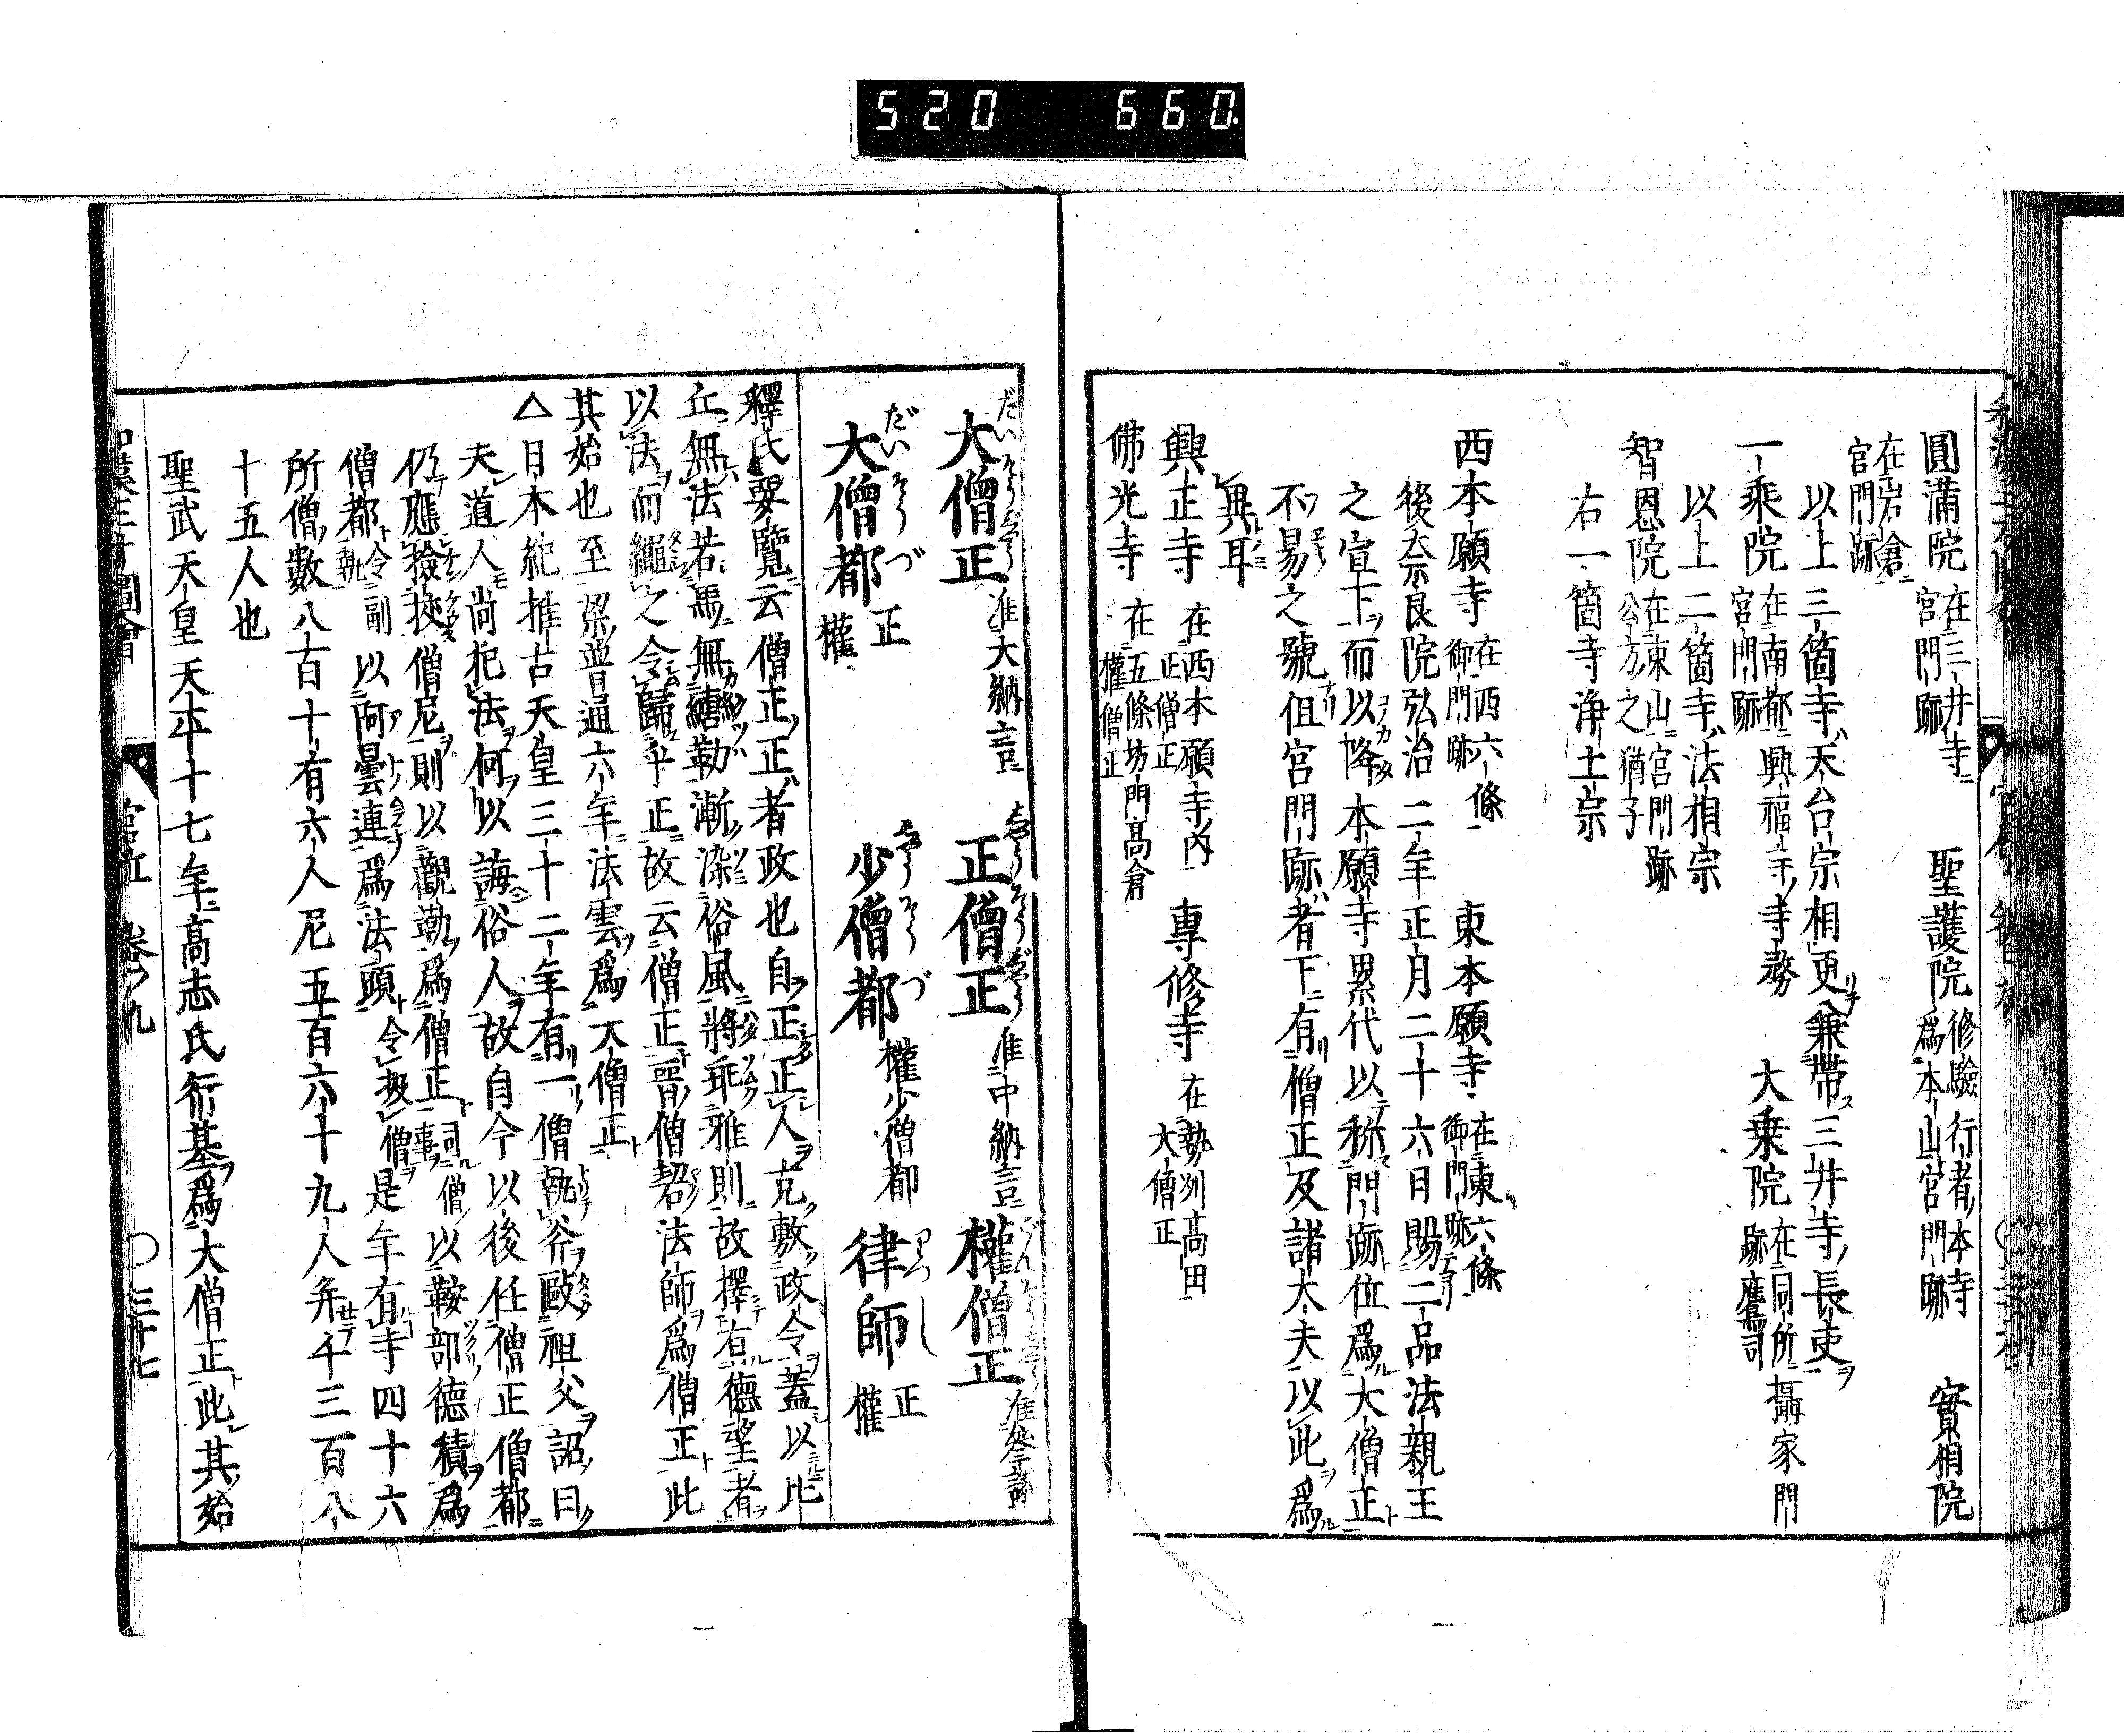 520 660.
圓蒲院 在三井寺 宮門跡 聖護院 修驗行者本寺 爲本山宮門跡 實相院
在岩倉 宮門跡
以上三箇寺天台宗相更兼帶三井寺長吏
一乘院 在南都興福寺寺務 宮門跡 大乗院 在同所攝家門跡鷹司
以上二箇寺法相宗
智恩院 在東山宮門跡 公方之猶子
右一箇寺浄土宗
西本願寺 在西六條 御門跡 東本願寺 在東六條 御門跡
後奈良院弘治二年正月二十六日賜二品法親王
之宣下而以降本願寺累代以称門跡位爲大僧正
不易之號但宮門跡者下有僧正及諸大夫以此爲
異耳
興正寺 在西本願寺内 正僧正 専修寺 在勢州高田 大僧正
佛光寺 在五條坊門高倉 權僧正
大僧正 准大納言 正僧正 准中納言 權僧正 准參議
大僧都 正 權 少僧都 權少僧都 律師 正 權
釋氏要覽云僧正正者政也自正正人克敷政令蓋以比
丘無法若馬無轡勒漸染俗風將乖雅則故擇有德望者
以法而繩之令歸乎正故云僧正晋僧䂮法師爲僧正此
其始也至梁普通六年法雲爲大僧正
△日本紀推古天皇三十二年有一僧執斧毆祖父詔曰
夫道人尚犯法何以誨俗人故自今以後任僧正僧都
仍應撿挍僧尼則以觀勒爲僧正 司僧事 以鞍部德積爲
僧都 令副執 以阿曇連爲法頭 令扱僧 是年有寺四十六
所僧數八百十有六人尼五百六十九人并千三百八
十五人也
聖武天皇天平十七年高志氏行基爲大僧正此其始
官位 卷ノ九 〇三十七